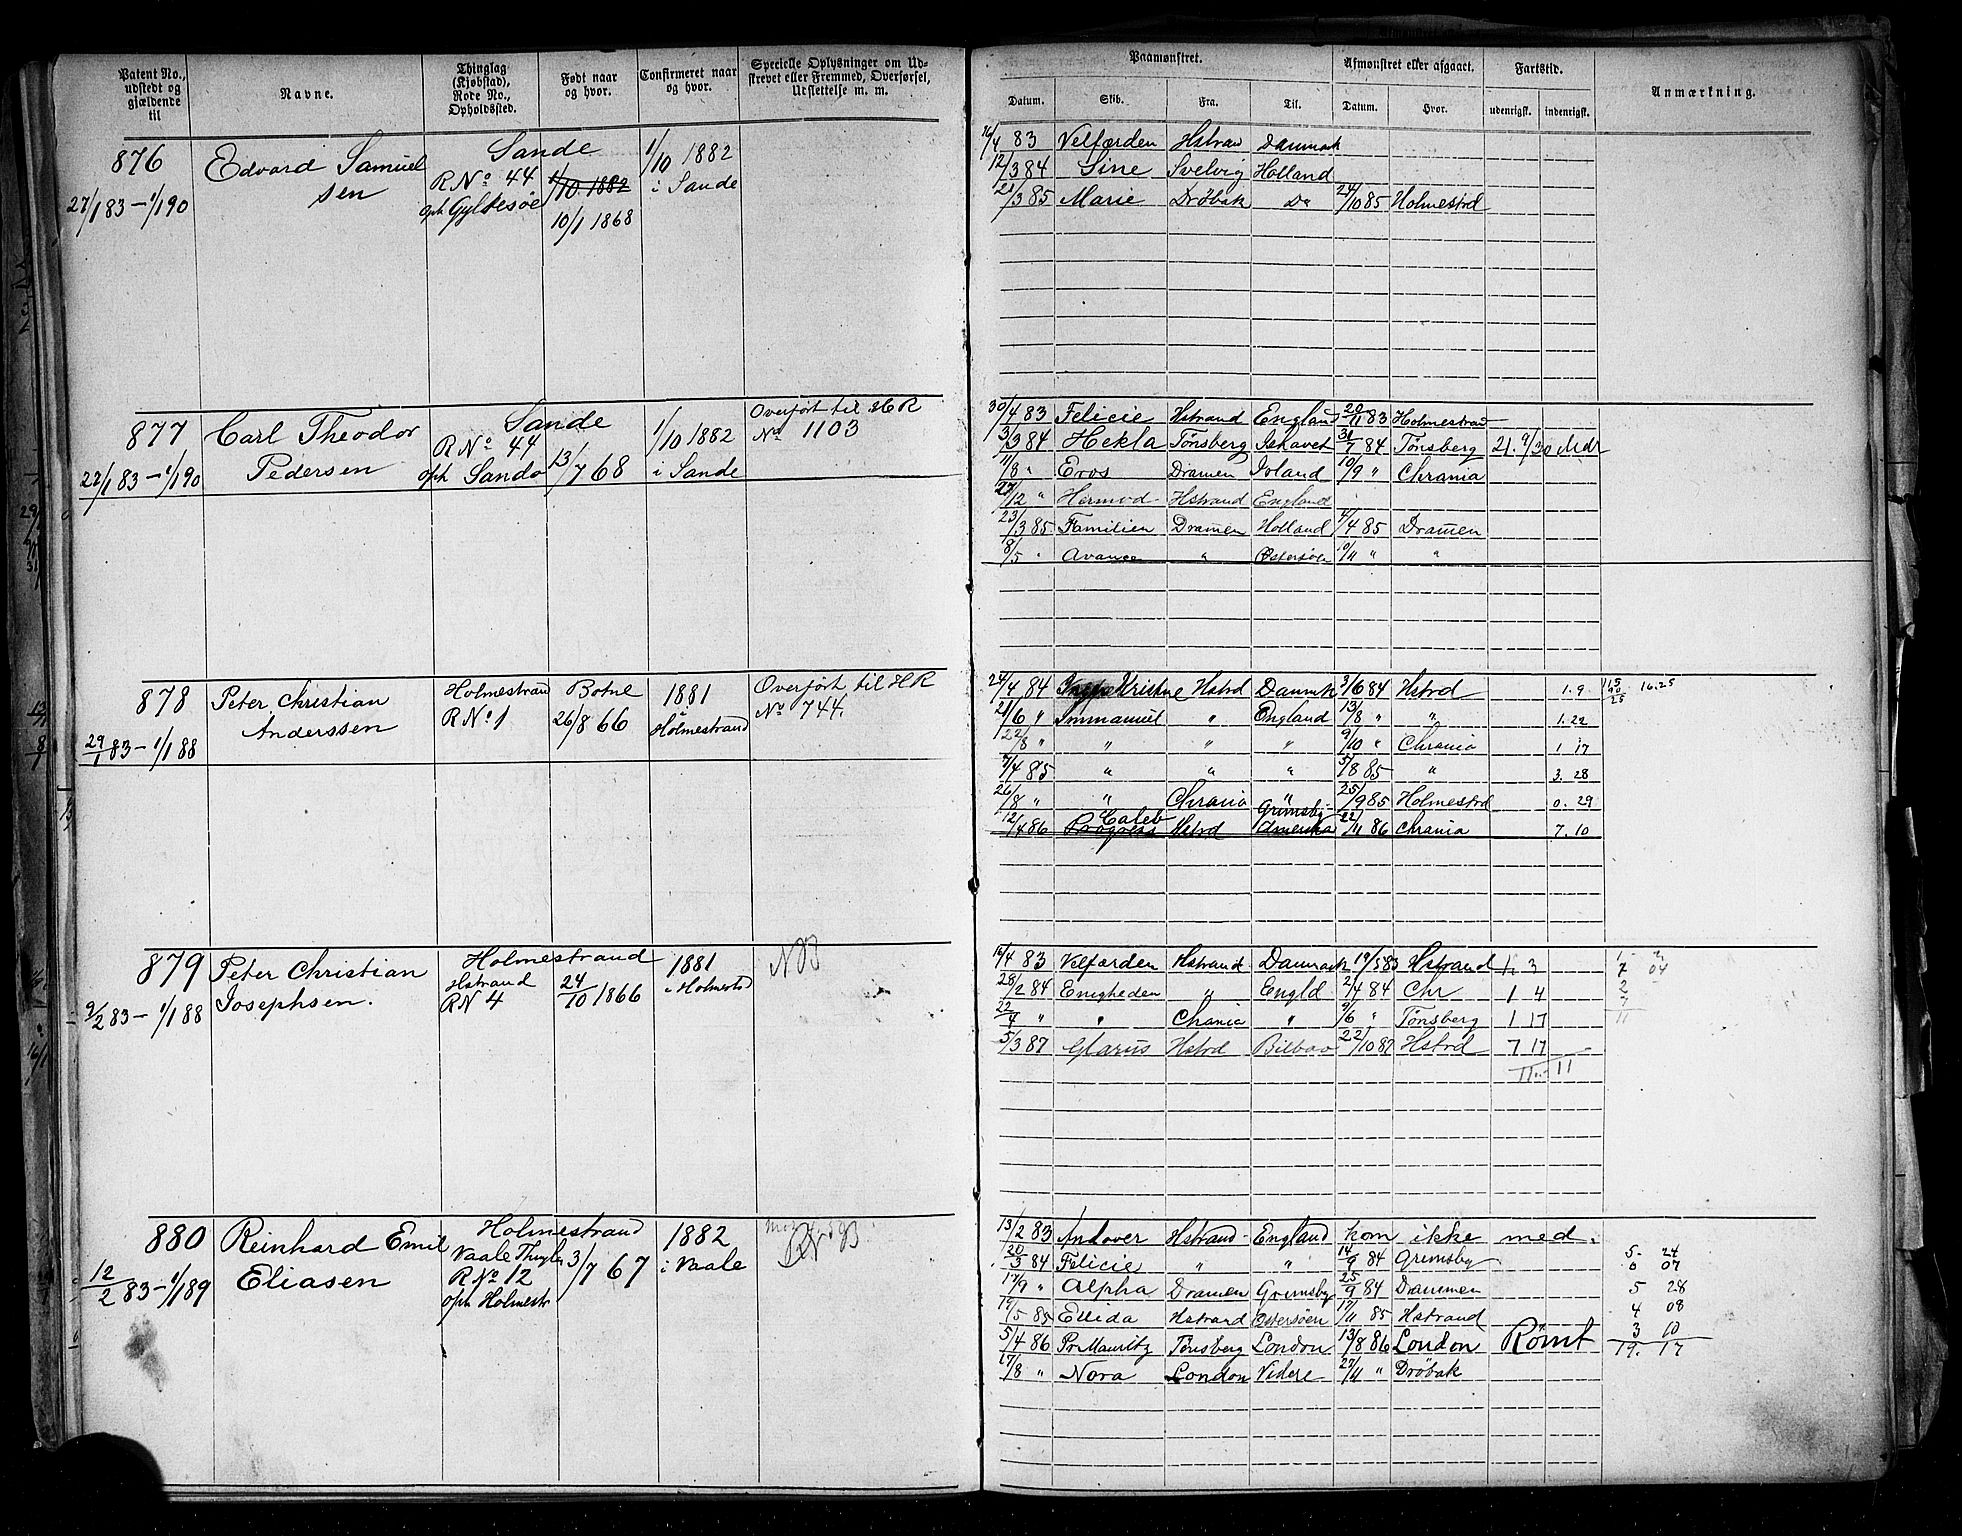 Patent No., udstedt og gjældende til
Navne.
Thinglag (Kjøbstad), Rode No., Opholdssted.
Født naar og hvor.
Confirmeret naar og hvor.
Specielle Oplysninger om Udskrevet eller Fremmed, Overførsel, Udslettelse m. m.
Paamønstret.
Afmønstret eller afgaaet.
Fartstid.
Anmærkning.
Datum. Skib. Fra. Til. Datum. Hvor. udenrigsk. indenrigsk.
876
27/1 83 – 1/1 90
Edvard Samuelsen
Sande
R No 44
oph Gyltesøe
1/10 1882
10/1 1868
1/10 1882
i Sande
16/4 83 Velfærden Hstran Danmark
12/3 84 Sine Svelvig Holland
21/3 85 Marie Drøbak Do 24/10 85 Holmestrd
877
22/1 83 – 1/1 90
Carl Theodor
Pedersen
Sande
R No 44
oph Sande
13/7 68
1/10 1882
i Sande
Overført til HR
No 1103
30/4 83 Felicie Hstrand England 20/11 83 Holmestrand
3/3 84 Hekla Tønsberg Ishavet 31/7 84 Tønsberg 21. 9/30 Mdr
11/8 " Eros Dramen Irland 10/9 " Chrania
27/12 " Hermod Hstrand England
23/3 85 Familien Dramen Holland 4/4 85 Dramen
8/5 " Avance " Østersøen 10/11 " "
878
29/1 83 – 1/1 88
Peter Christian
Anderssen
Holmestrand
R No 1
Botne
26/8 66
1881
i Holmestrand
Overført til HR
No 744.
24/4 84 Kristine Hstrd Danmk 3/6 84 Hstrd 1. 9 16.25
21/6 " Immanuel " England 13/8 " " 1. 22
22/8 " " " " 9/10 " Chrania 1 17
7/4 85 " " " 5/8 85 " 3. 28
26/8 " " Chrania " 25/9 85 Holmestrd 0. 29
Caleb Grimsby
12/4 86 Progress Hstrd Amerika 22/11 86 Chrania 7. 10
879
9/2 83 – 1/1 88
Peter Christian
Josephsen.
Holmestrand
Hstrand
R N 4
24/10 1866
1881
i Holmestd
NB
16/4 83 Velfærden Hstrand Danmark 19/5 83 Hstrand 1. 3
28/2 84 Enigheden " Engld 2/4 84 Chr 1 4
22/4 " " Chania " 9/6 " Tønsberg 1 17
5/3 87 Glarus Hstrd Bilbao 22/10 87 Hstrd 7 17
11 – 11
880
12/2 83 – 1/1 89
Reinhard Emil
Eliasen
Holmestrand
Vaale Thingla
R No 12
oph Holmestr
3/7 67
1882
i Vaale
13/2 83 Andover Hstrand England kom ikke med.
20/3 84 Felicie " " 14/9 84 Grimsby 5. 24
17/9 " Alpha Dramen Grimsby 25/9 84 Drammen 0 07
19/5 85 Ellida Hstrand Østersøen 17/11 85 Hstrand 5 28
5/4 86 Pr Mauritz Tønsberg London 13/8 86 London Rømt 4 08
27/8 " Nora London Videre 27/11 " Drøbak 3 10
19. 17